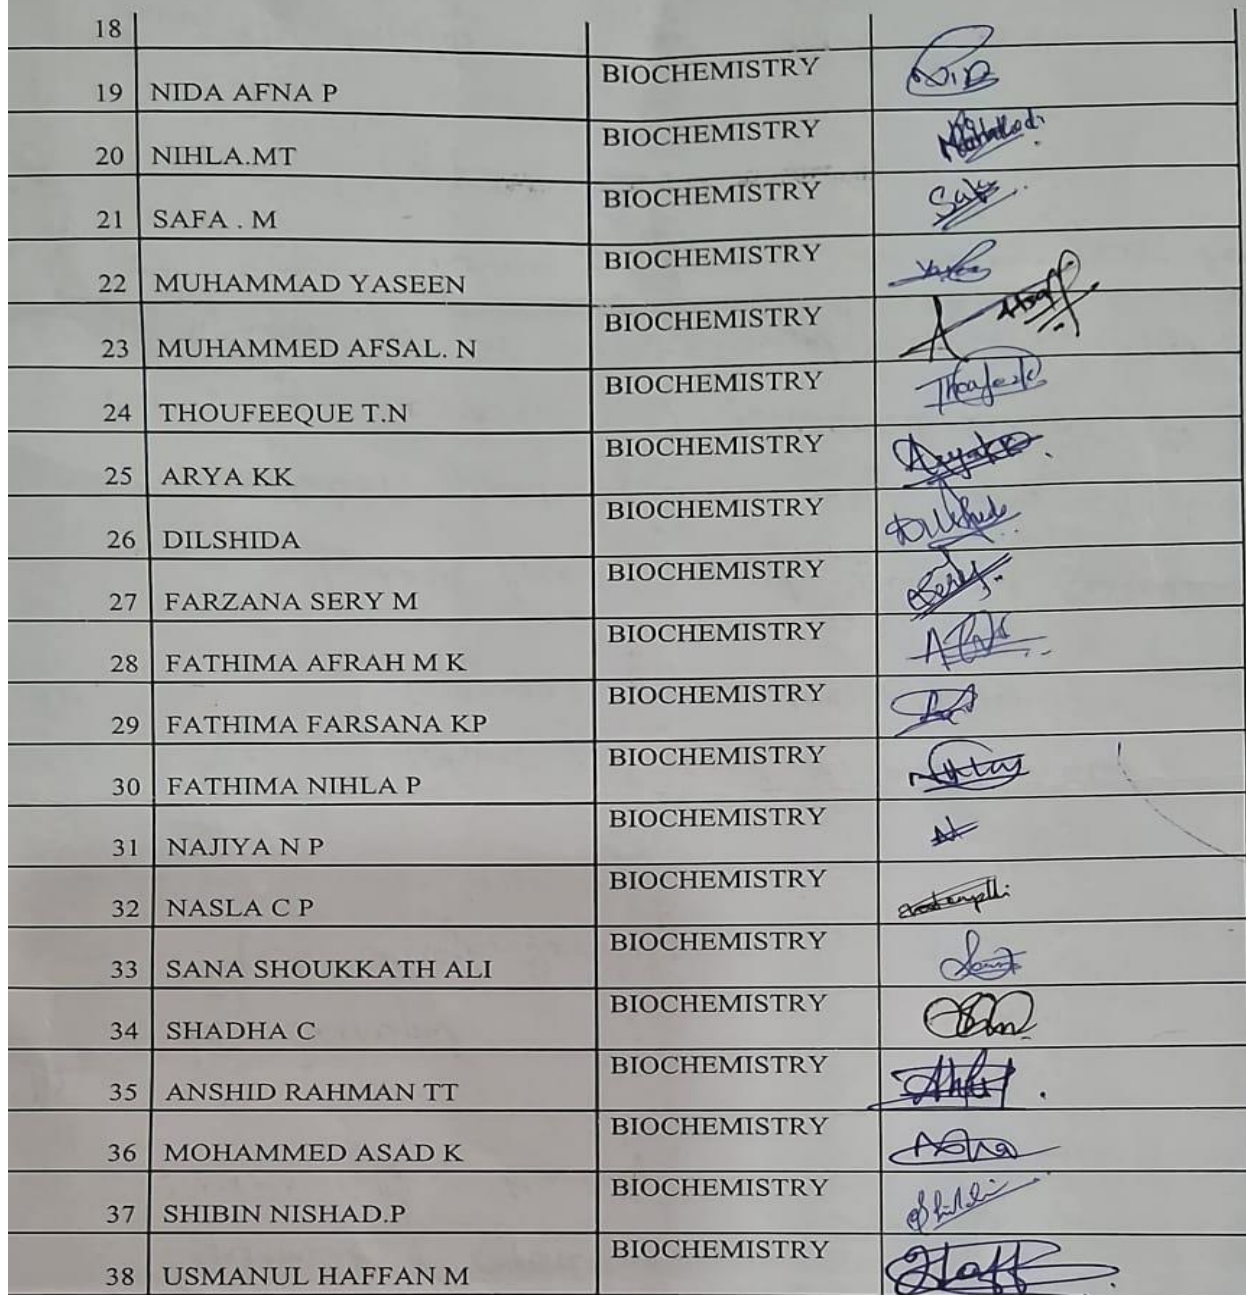 18
19 NIDA AFNA P BIOCHEMISTRY
20 NIHLA.MT BIOCHEMISTRY
21 SAFA . M BIOCHEMISTRY
22 MUHAMMAD YASEEN BIOCHEMISTRY
23 MUHAMMED AFSAL. N BIOCHEMISTRY
24 THOUFEEQUE T.N BIOCHEMISTRY
25 ARYA KK BIOCHEMISTRY Arya KK
26 DILSHIDA BIOCHEMISTRY
27 FARZANA SERY M BIOCHEMISTRY
28 FATHIMA AFRAH M K BIOCHEMISTRY
29 FATHIMA FARSANA KP BIOCHEMISTRY
30 FATHIMA NIHLA P BIOCHEMISTRY
31 NAJIYA N P BIOCHEMISTRY
32 NASLA C P BIOCHEMISTRY
33 SANA SHOUKKATH ALI BIOCHEMISTRY
34 SHADHA C BIOCHEMISTRY
35 ANSHID RAHMAN TT BIOCHEMISTRY
36 MOHAMMED ASAD K BIOCHEMISTRY
37 SHIBIN NISHAD.P BIOCHEMISTRY
38 USMANUL HAFFAN M BIOCHEMISTRY